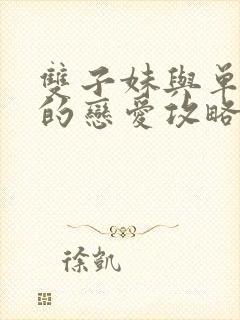 雙子妹與單
的戀愛攻略
徐凱